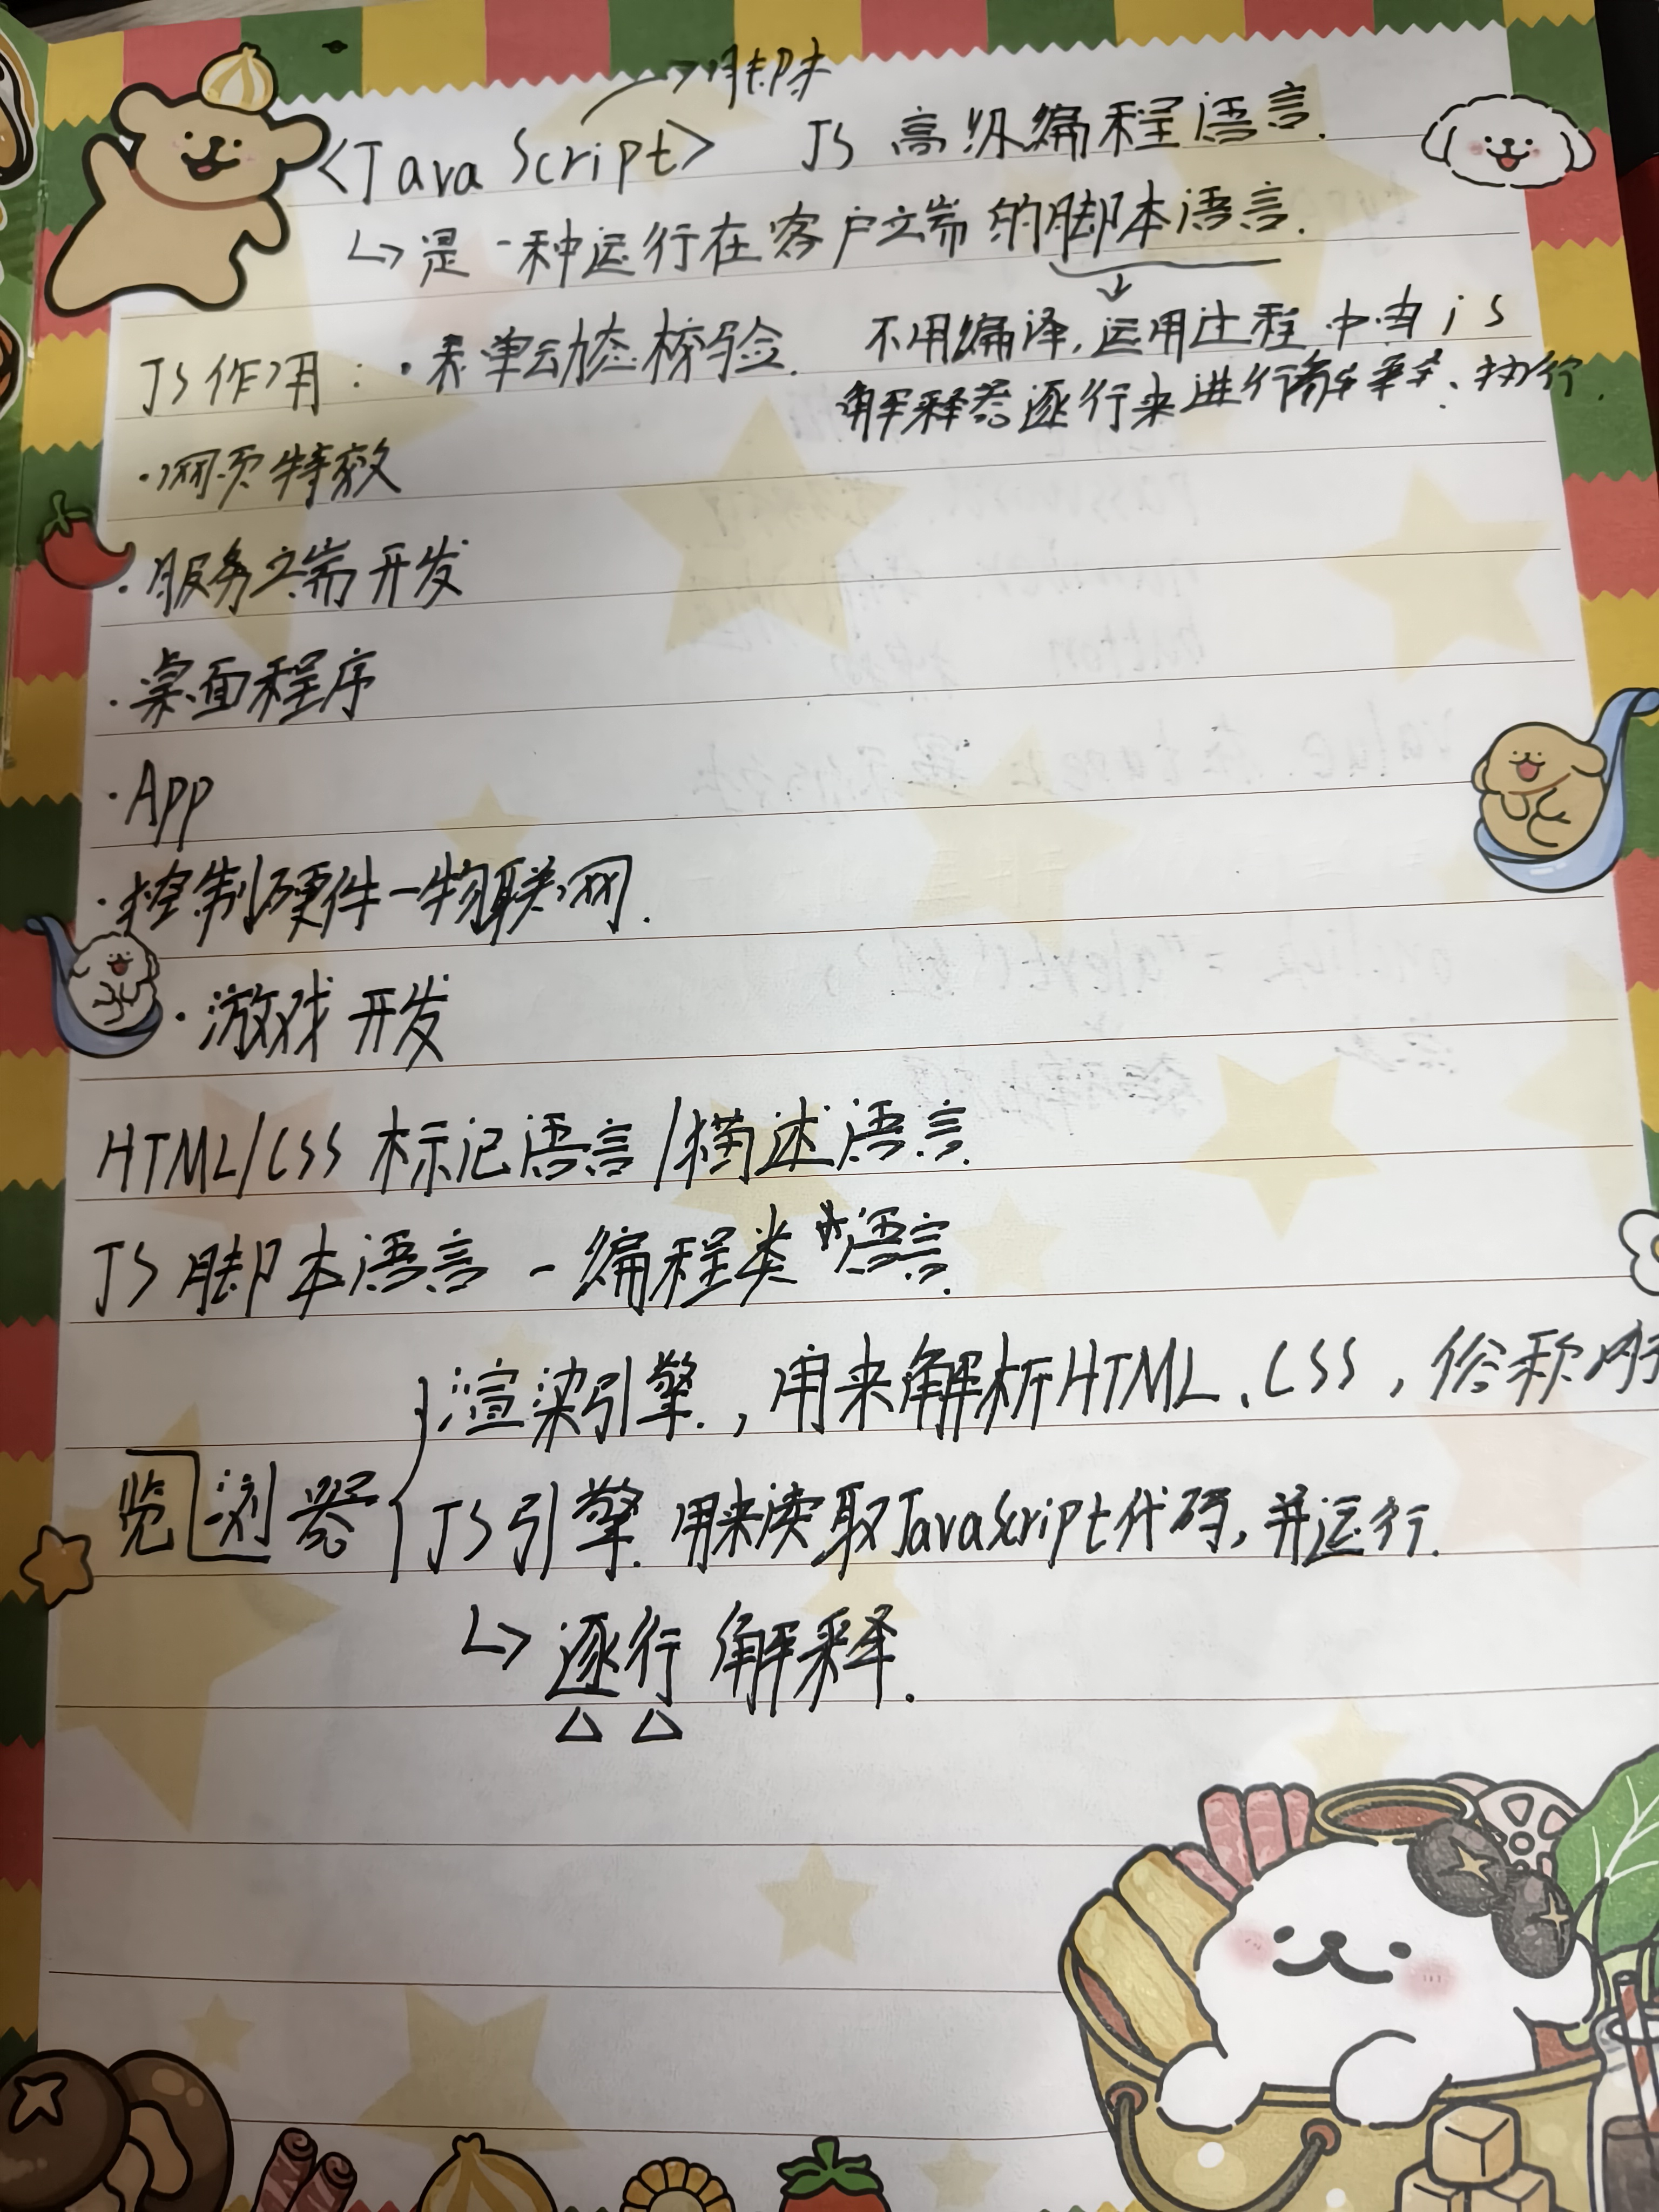 →脚本
<Java Script> JS 高级编程语言.
↳是一种运行在客户立端的脚本语言.
JS作用: ·表单动态校验. 不用编译,运用过程中由js
解释器逐行来进行解释、执行.
·网页特效
·服务端开发
·桌面程序
·App
·控制硬件-物联网.
·游戏开发
HTML/CSS 标记语言/描述语言.
JS 脚本语言 - 编程类的语言.
渲染引擎.,用来解析HTML、CSS,俗称
览浏器
JS引擎.用来读取JavaScript代码,并运行.
↳逐行解释.